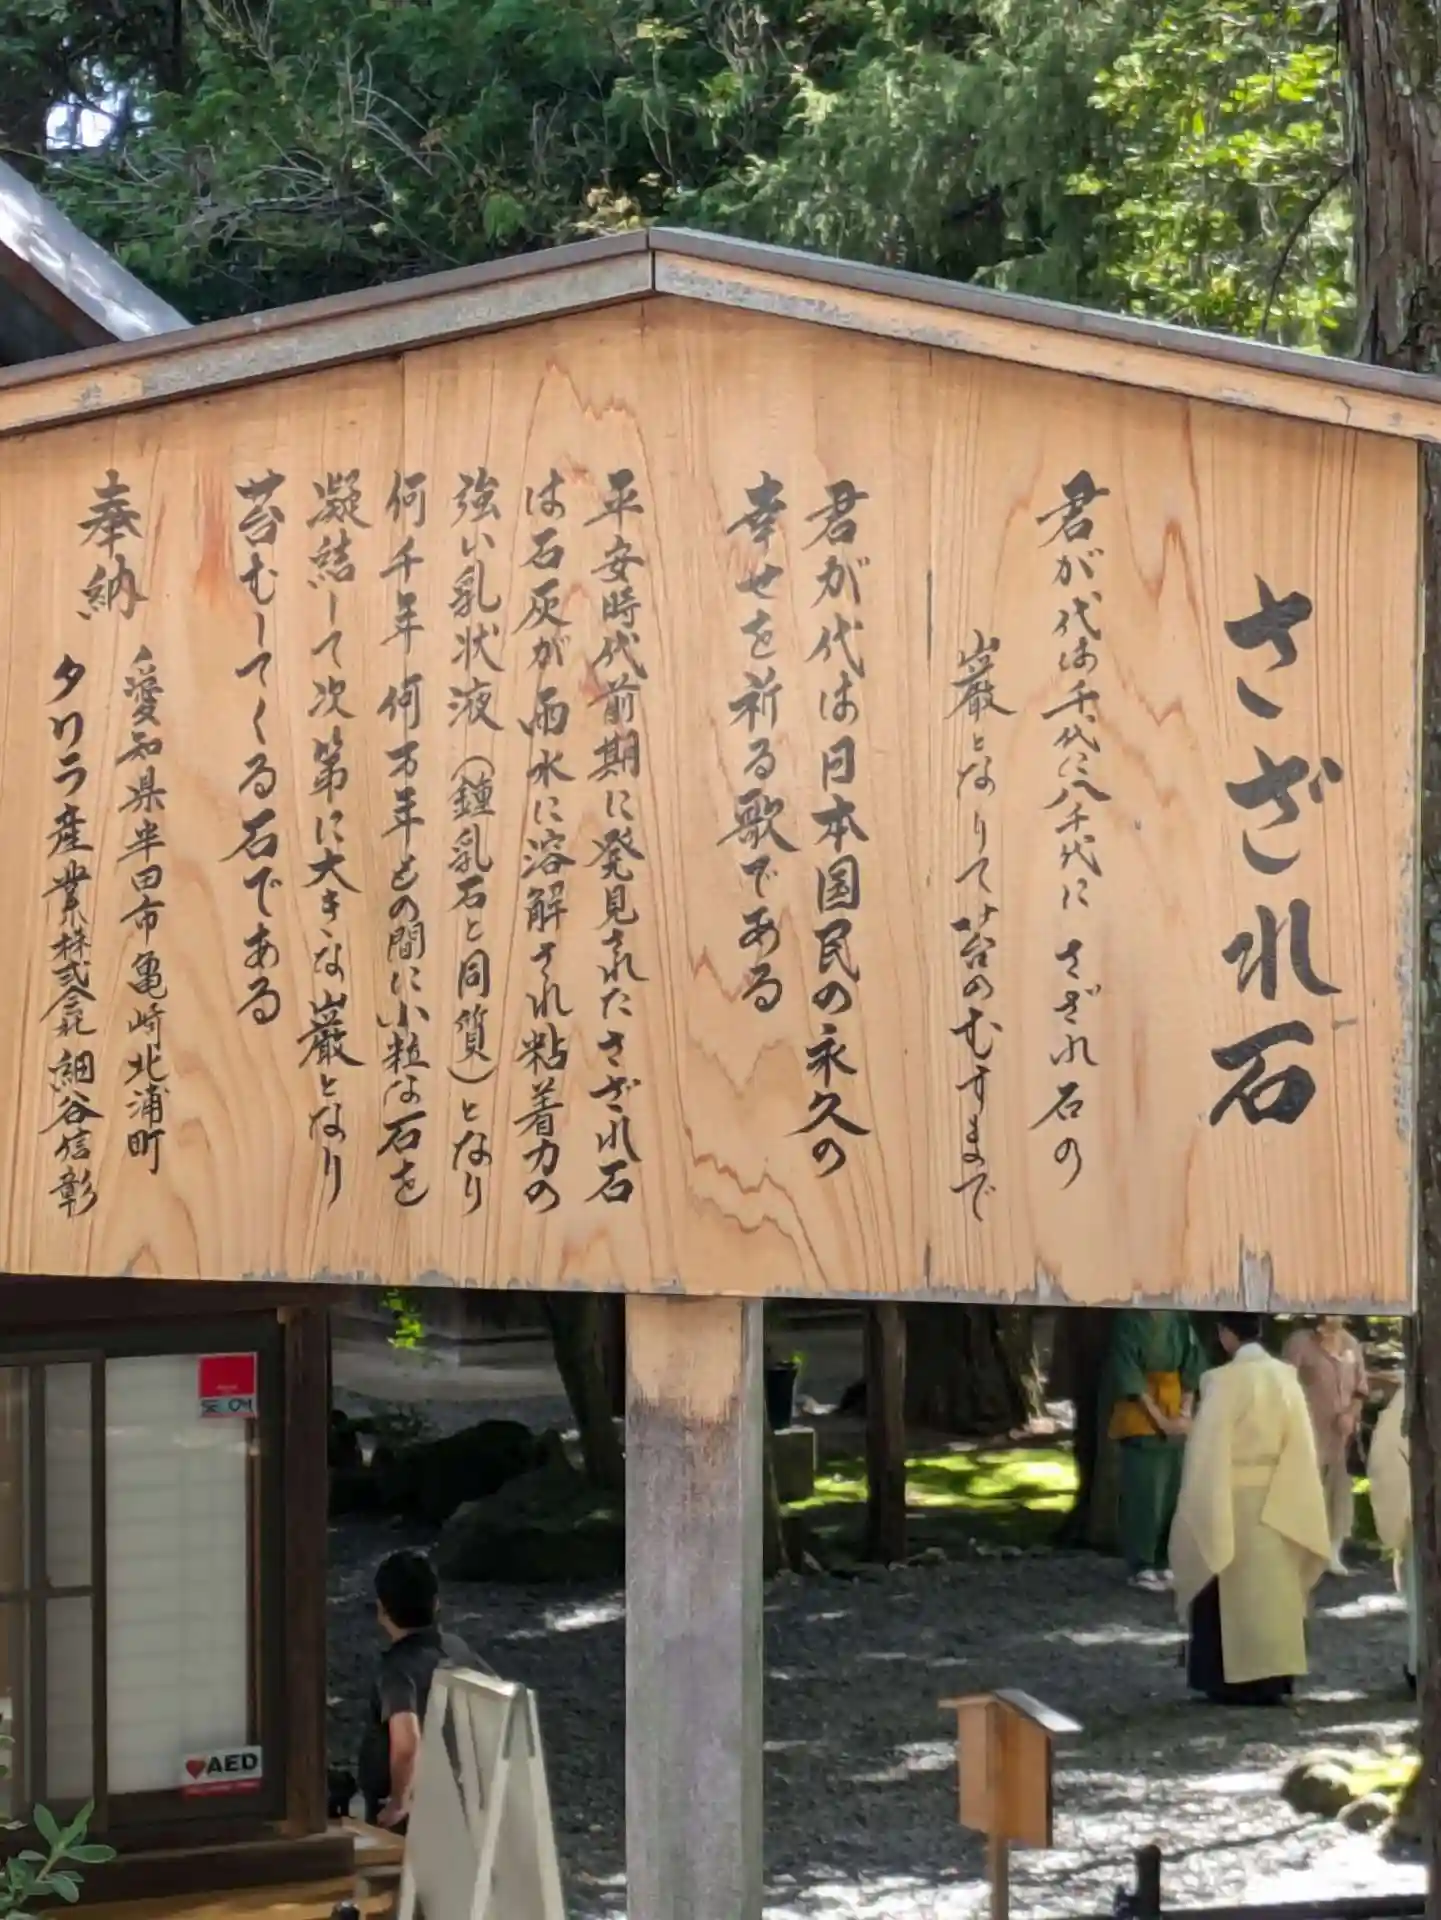 さざれ石
君が代は千代に八千代に さざれ石の
巌となりて 苔のむすまで
君が代は日本国民の永久の
幸せを祈る歌である
平安時代前期に発見されたさざれ石
は石灰が雨水に溶解され粘着力の
強い乳状液(鍾乳石と同質)となり
何千年何万年もの間に小粒な石を
凝結して次第に大きな巌となり
苔むしてくる石である
奉納
愛知県半田市亀崎北浦町
タワラ産業株式会社 細谷信彰
AED